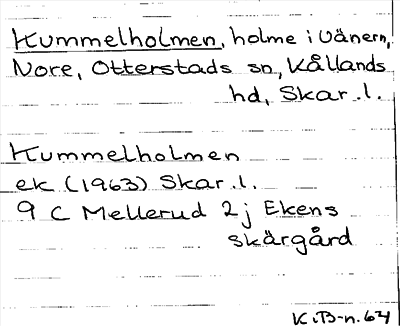 Kummelholmen, holme i Vänern,
Nore, Otterstads sn, Kållands
hd, Skar.l.
Kummelholmen
ek (1963) Skar.l.
9 C Mellerud 2j Ekens
skärgård
K.B-n.64